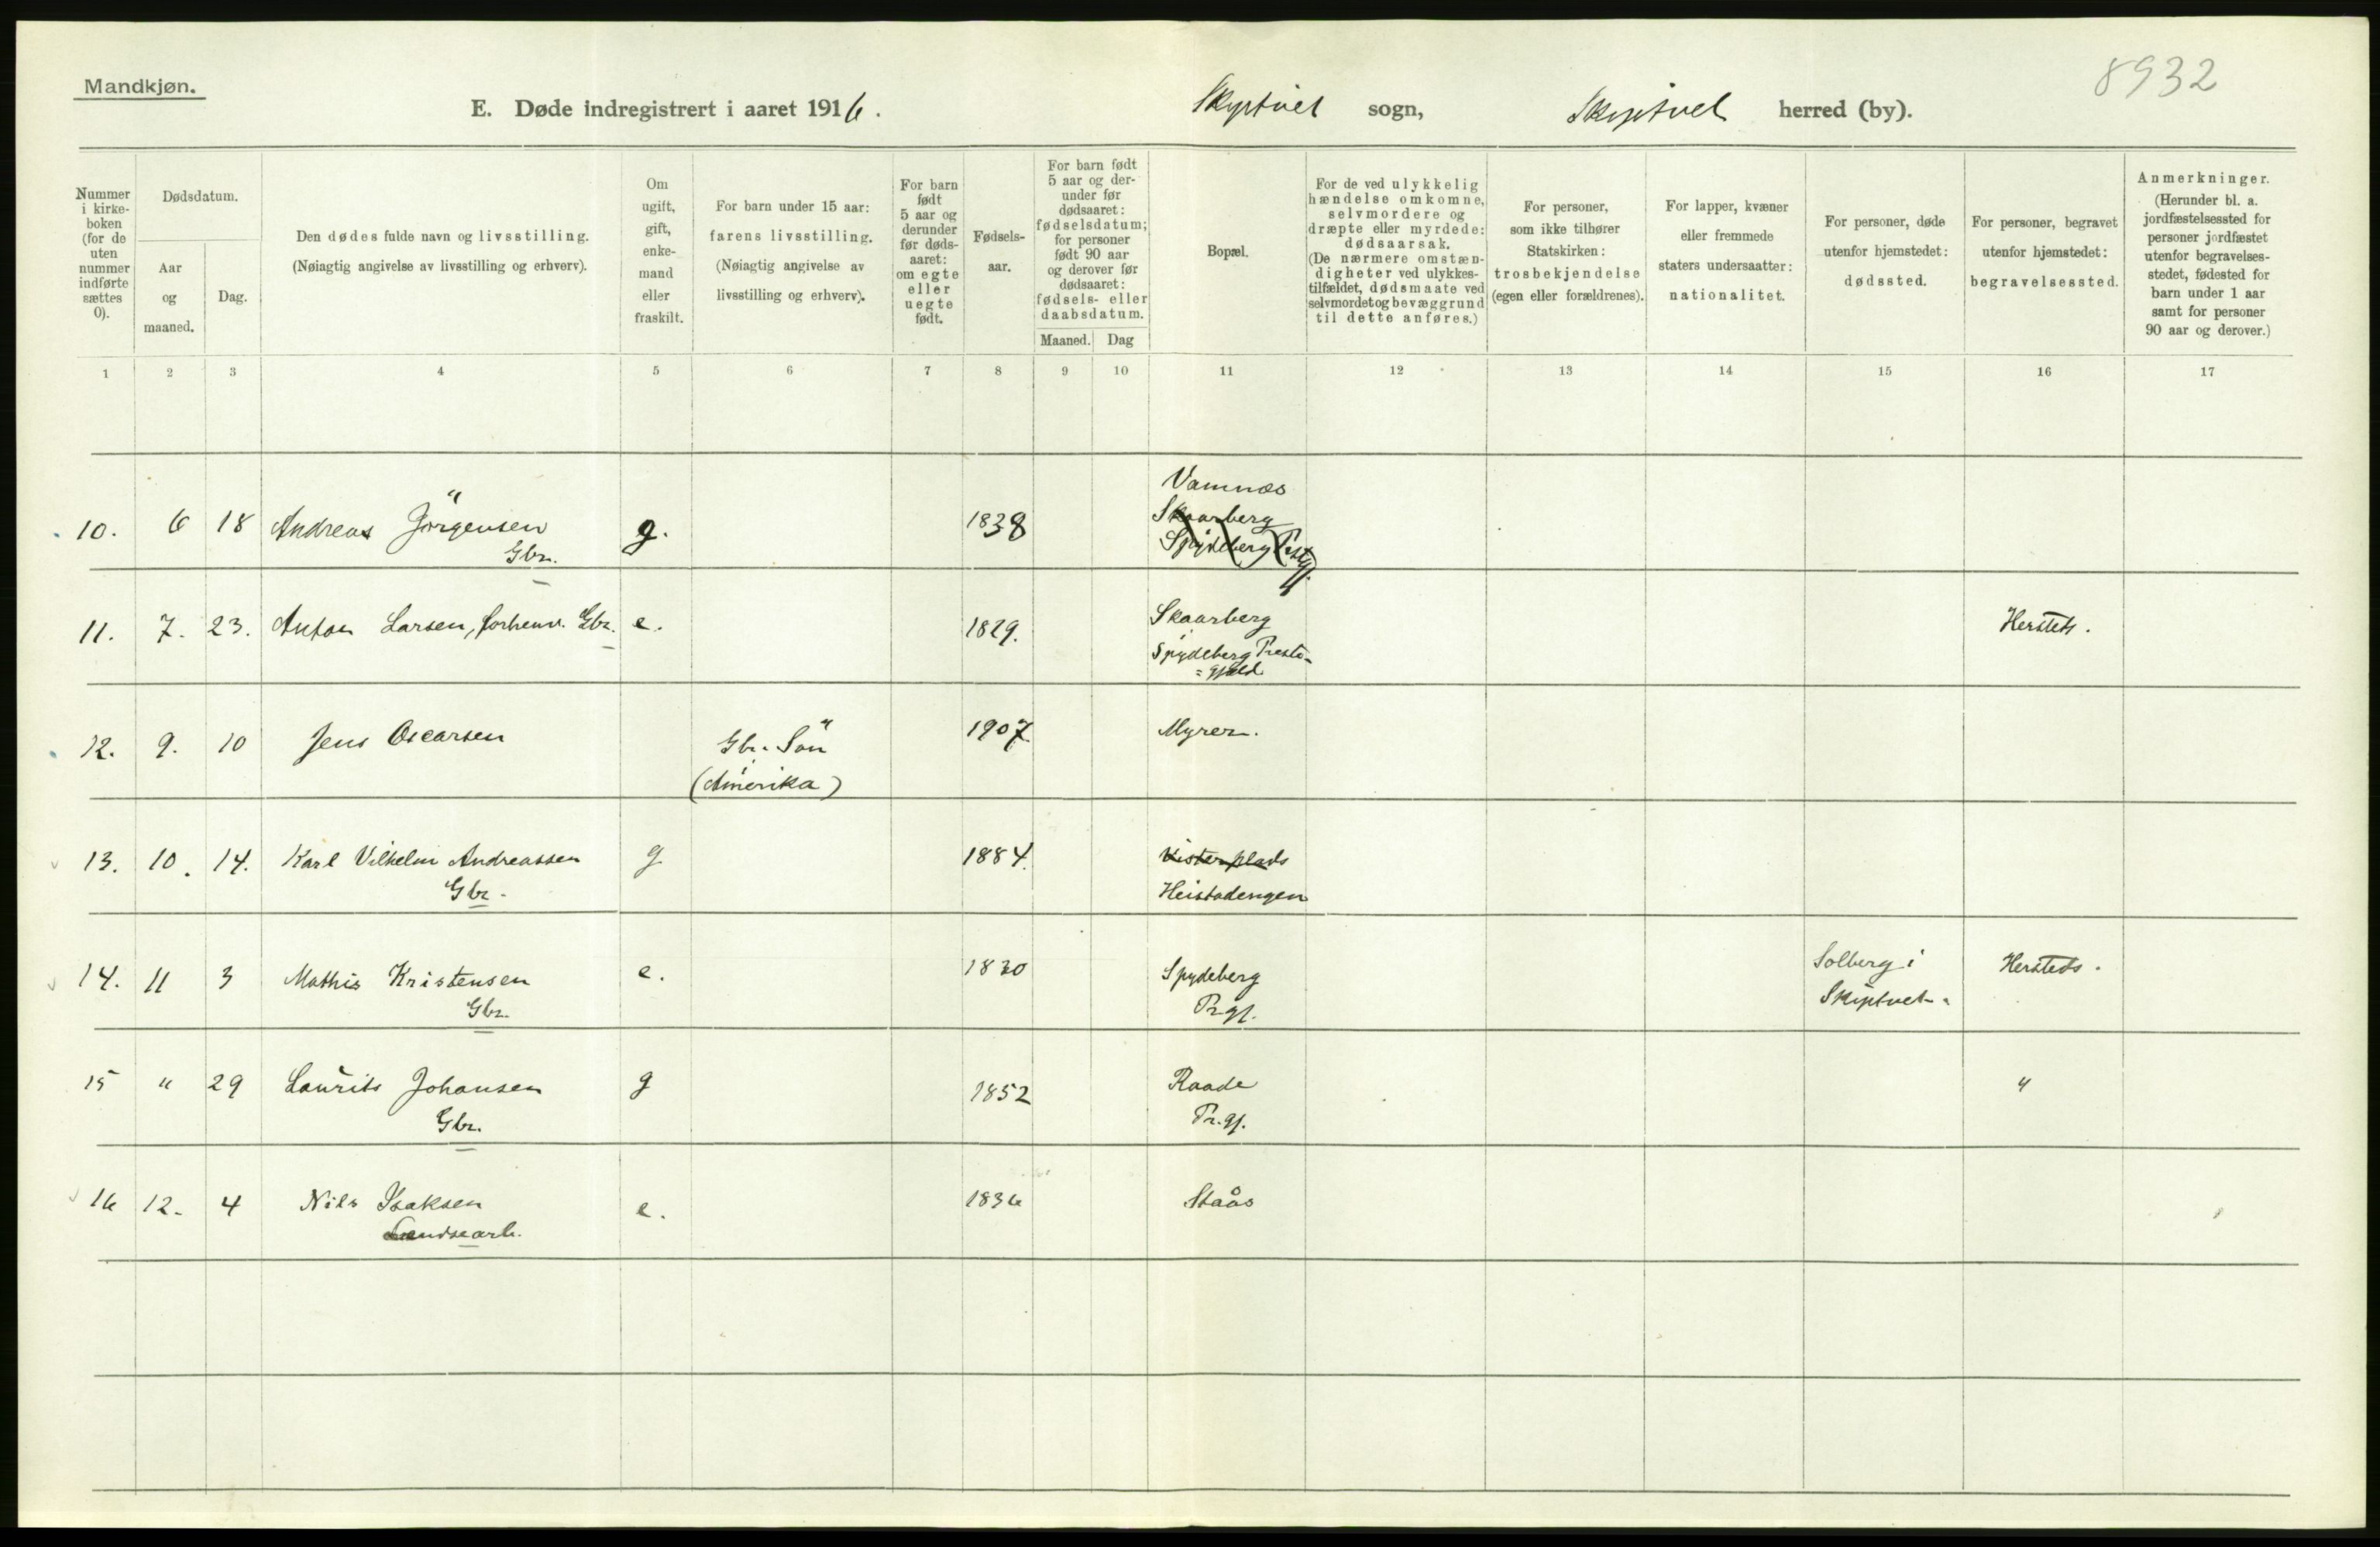 Mandkjøn.
8932
E. Døde indregistrert i aaret 1916.
Skiptvet sogn, Skiptvet herred (by).
Nummer i kirkeboken (for de uten nummer indførte sættes 0).
Dødsdatum.
Aar og maaned.
Dag.
Den dødes fulde navn og livsstilling.
(Nøiagtig angivelse av livsstilling og erhverv).
Om ugift, gift, enkemand eller fraskilt.
For barn under 15 aar: farens livsstilling.
(Nøiagtig angivelse av livsstilling og erhverv).
For barn født 5 aar og derunder før dødsaaret: om egte eller uegte født.
Fødselsaar.
For barn født 5 aar og derunder før dødsaaret: fødselsdatum; for personer født 90 aar og derover før dødsaaret: fødsels- eller daabsdatum.
Maaned. Dag
Bopæl.
For de ved ulykkelig hændelse omkomne, selvmordere og dræpte eller myrdede: dødsaarsak.
(De nærmere omstændigheter ved ulykkestilfældet, dødsmaate ved selvmordet og bevæggrund til dette anføres.)
For personer, som ikke tilhører Statskirken: trosbekjendelse (egen eller forældrenes).
For lapper, kvæner eller fremmede staters undersaatter: nationalitet.
For personer, døde utenfor hjemstedet: dødssted.
For personer, begravet utenfor hjemstedet: begravelsessted.
Anmerkninger.
(Herunder bl. a. jordfæstelsessted for personer jordfæstet utenfor begravelsesstedet, fødested for barn under 1 aar samt for personer 90 aar og derover.)
1 2 3 4 5 6 7 8 9 10 11 12 13 14 15 16 17
Vamnæs
10. 6 18 Andreas Jörgensen g. 1838 Skaarberg
Gbr. Spydeberg Prestgj.
11. 7. 23. Anton Larsen, forhenv. Gbr. e. 1829. Skaarberg Hersteds.
Spydeberg Preste-
=gjæld
12. 9. 10 Jens Oscarsen Gbr. Sön 1907. Myrer.
(Amerika)
13. 10. 14. Karl Vilhelm Andreassen g 1884. Visterplads
Gbr. Heistadengen
14. 11 3 Mathis Kristensen e. 1830 Spydeberg Solberg i Hersteds.
Gbr. Pr.gj. Skiptvet.
15 " 29 Laurits Johansen g 1852 Raade "
Gbr. Pr.gj.
16 12. 4 Nils Isaksen e. 1836 Staås